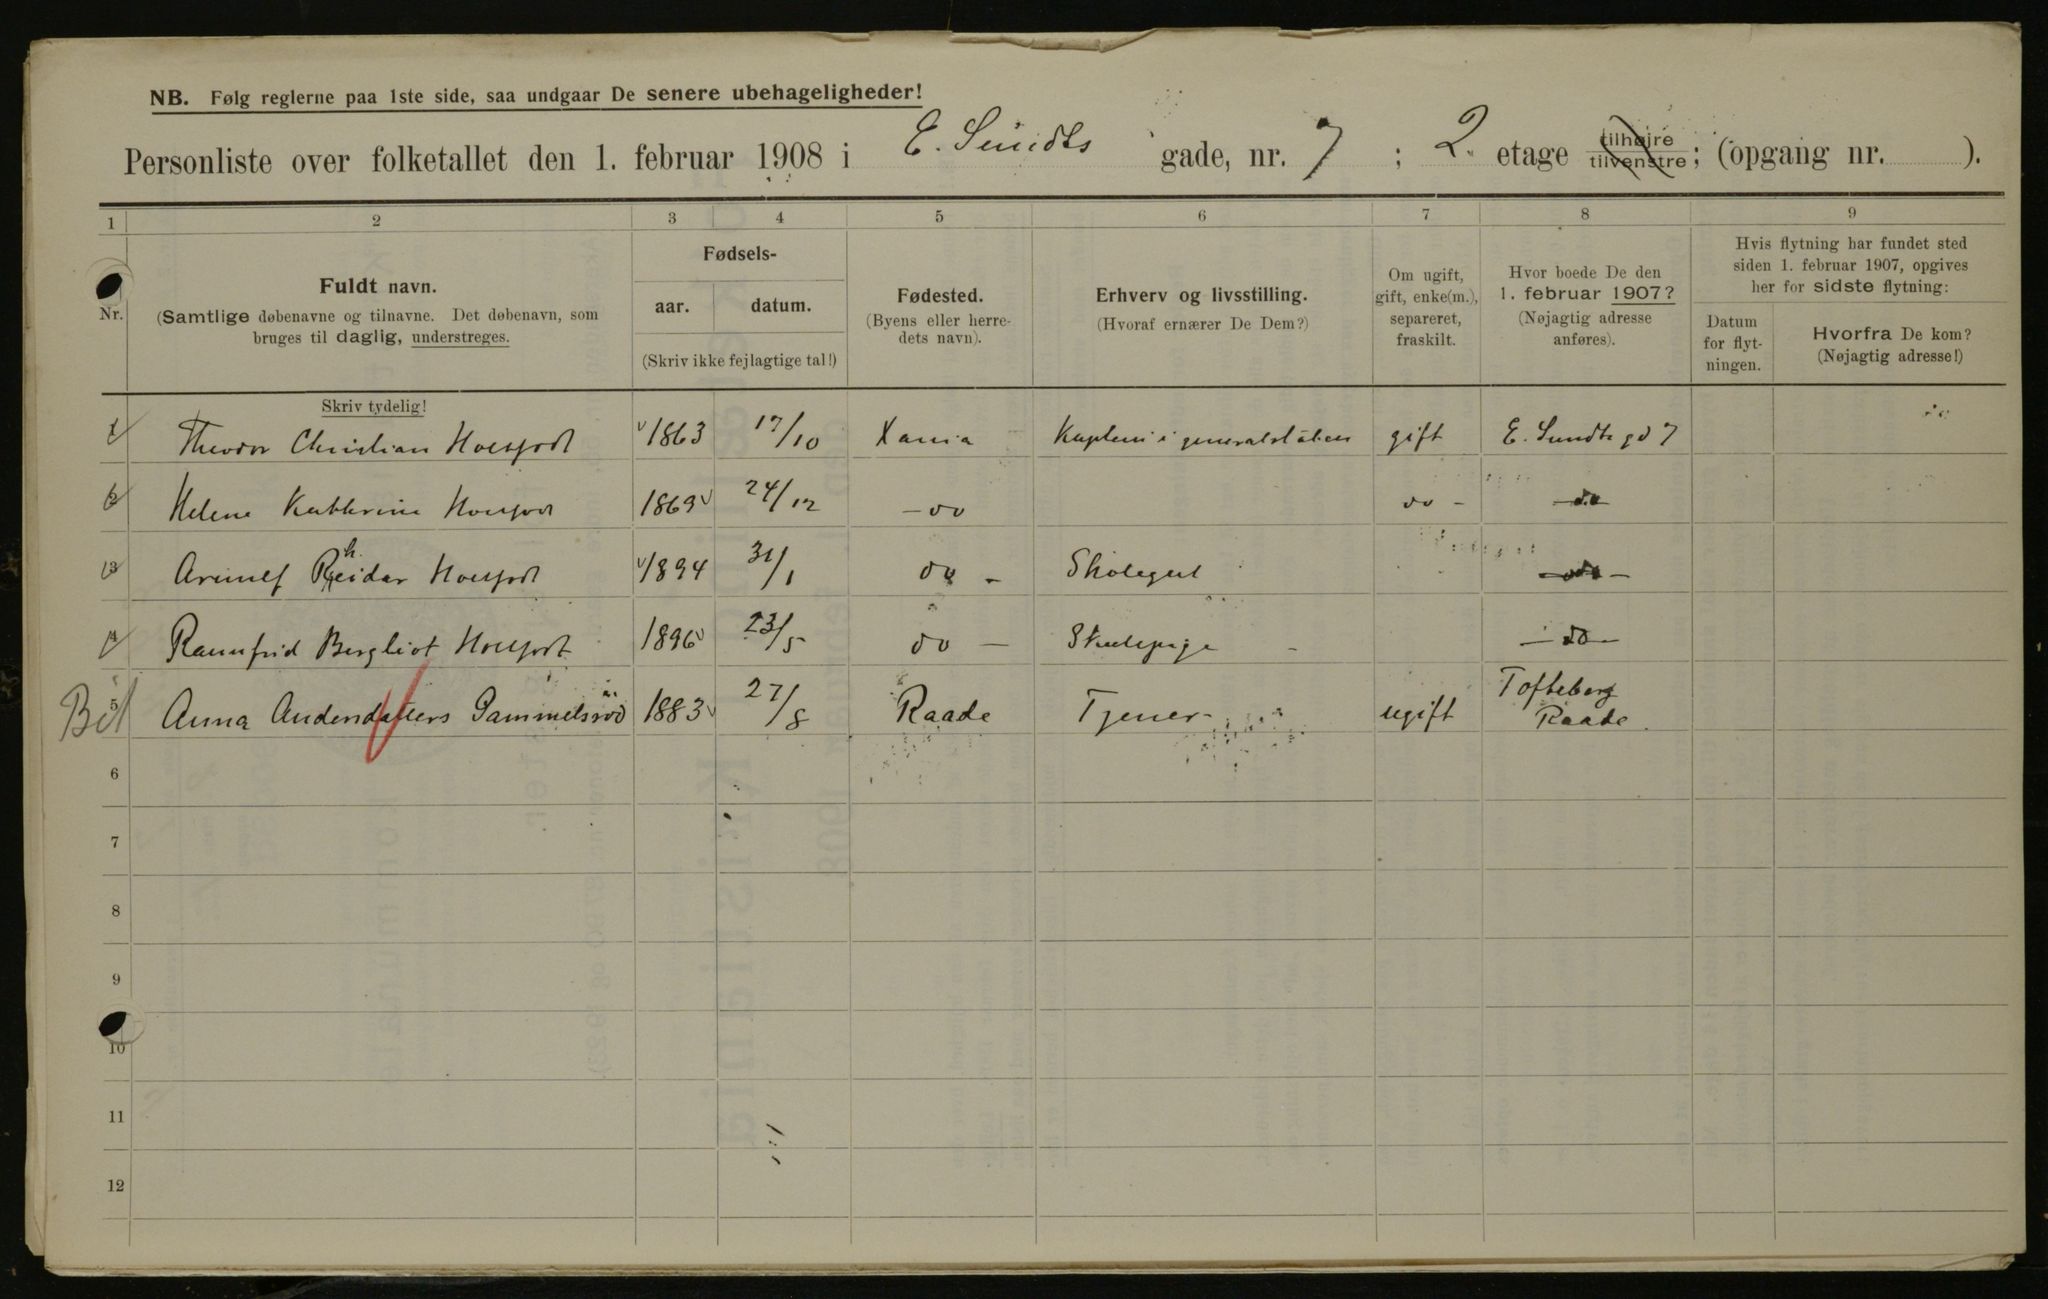 NB. Følg reglerne paa 1ste side, saa undgaar De senere ubehageligheder!
Personliste over folketallet den 1. februar 1908 i E. Sundts gade, nr. 7 ; 2. etage tilhøjre tilvenstre ; (opgang nr. ).
1 2 3 4 5 6 7 8 9
Nr.
Fuldt navn.
(Samtlige døbenavne og tilnavne. Det døbenavn, som
bruges til daglig, understreges.
Skriv tydelig!
Fødsels-
aar. datum.
(Skriv ikke fejlagtige tal!)
Fødested.
(Byens eller herre-
dets navn).
Erhverv og livsstilling.
(Hvoraf ernærer De Dem?)
Om ugift,
gift, enke(m.),
separeret,
fraskilt.
Hvor boede De den
1. februar 1907?
(Nøjagtig adresse
anføres).
Hvis flytning har fundet sted
siden 1. februar 1907, opgives
her for sidste flytning:
Datum
for flyt-
ningen.
Hvorfra De kom?
(Nøjagtig adresse!)
1 Theodor Christian Holtfodt 1863 17/10 Xania Kaptein i generalstaben gift E. Sundts gd 7
2 Helene Kathrine Holtfodt 1869 24/12 - do do - - do -
3 Arnulf Rheidar Holtfodt 1894 31/1 do - Skolegut - do -
4 Rannfrid Bergliot Holtfodt 1896 23/5 do - Skolepige - do -
5 Anna Andersdatters Gammelsrød 1883 27/8 Raade Tjener ugift Tofteberg
Raade
6
7
8
9
10
11
12